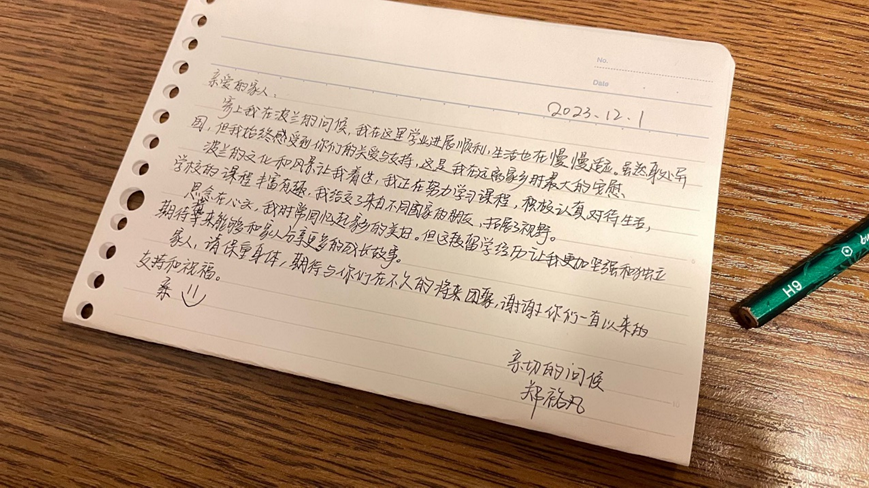 No.
Date
2023.12.1
亲爱的家人，
寄上我在波兰的问候，我在这里学业进展顺利，生活也在慢慢适应。虽然身处异
国，但我始终感受到你们的关爱与支持，这是我在远离家乡时最大的安慰
波兰的文化和风景让我着迷，我正在努力学习课程，积极认真对待生活，
学校的课程丰富有趣，我结交了来自不同国家的朋友，拓展了视野。
思念在心头，我时常回忆起家乡的美好。但这段留学经历让我更加坚强和独立
期待未来能够和家人分享更多的成长故事。
家人，请保重身体，期待与你们在不久的将来团聚，谢谢你们一直以来的
支持和祝福。
亲切的问候
郑裕凡
H9